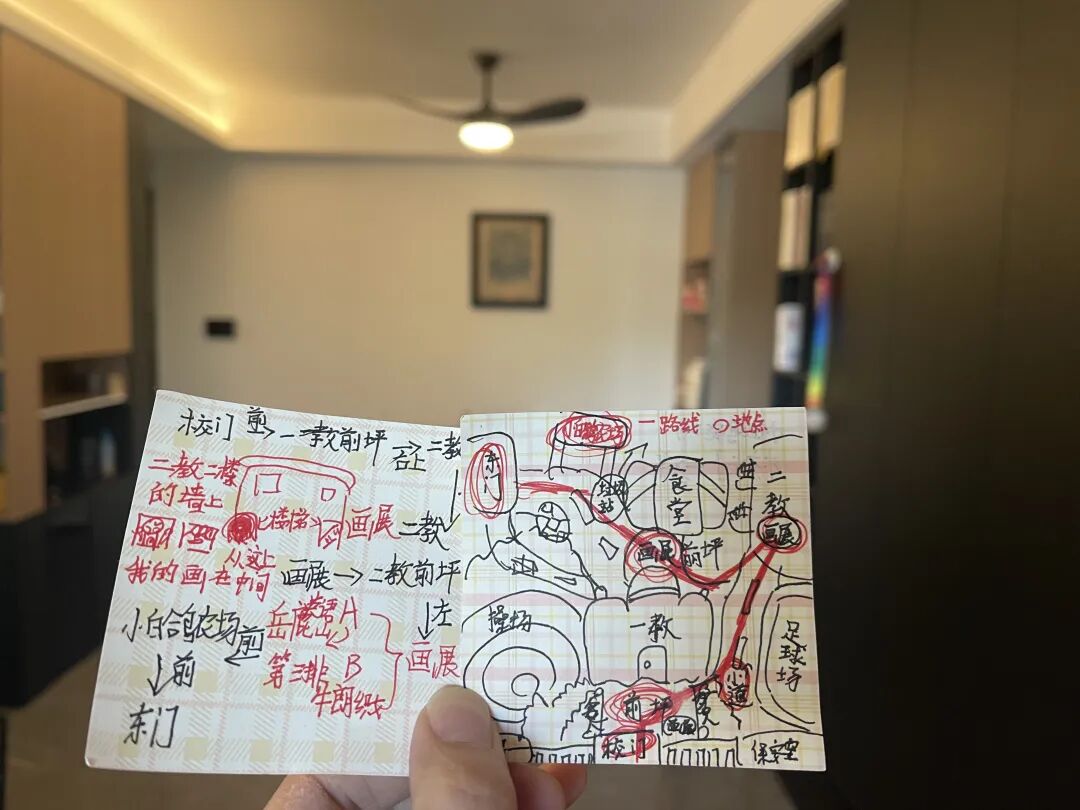 校门 前→ 一教前坪 → 右上 二教
二教二楼
的墙上
楼梯
画展
二教
从这上
我的画在中间
画展→二教前坪
小白鸽农场
前
左
岳麓山 A
画展
第三排 B
牛郎织女
前
东门
白鸽农场
一路线 ○地点
东门
垃圾站
食堂
二教
画展
画展
前坪
操场
一教
足球场
小道
前坪
画画
校门
保安室